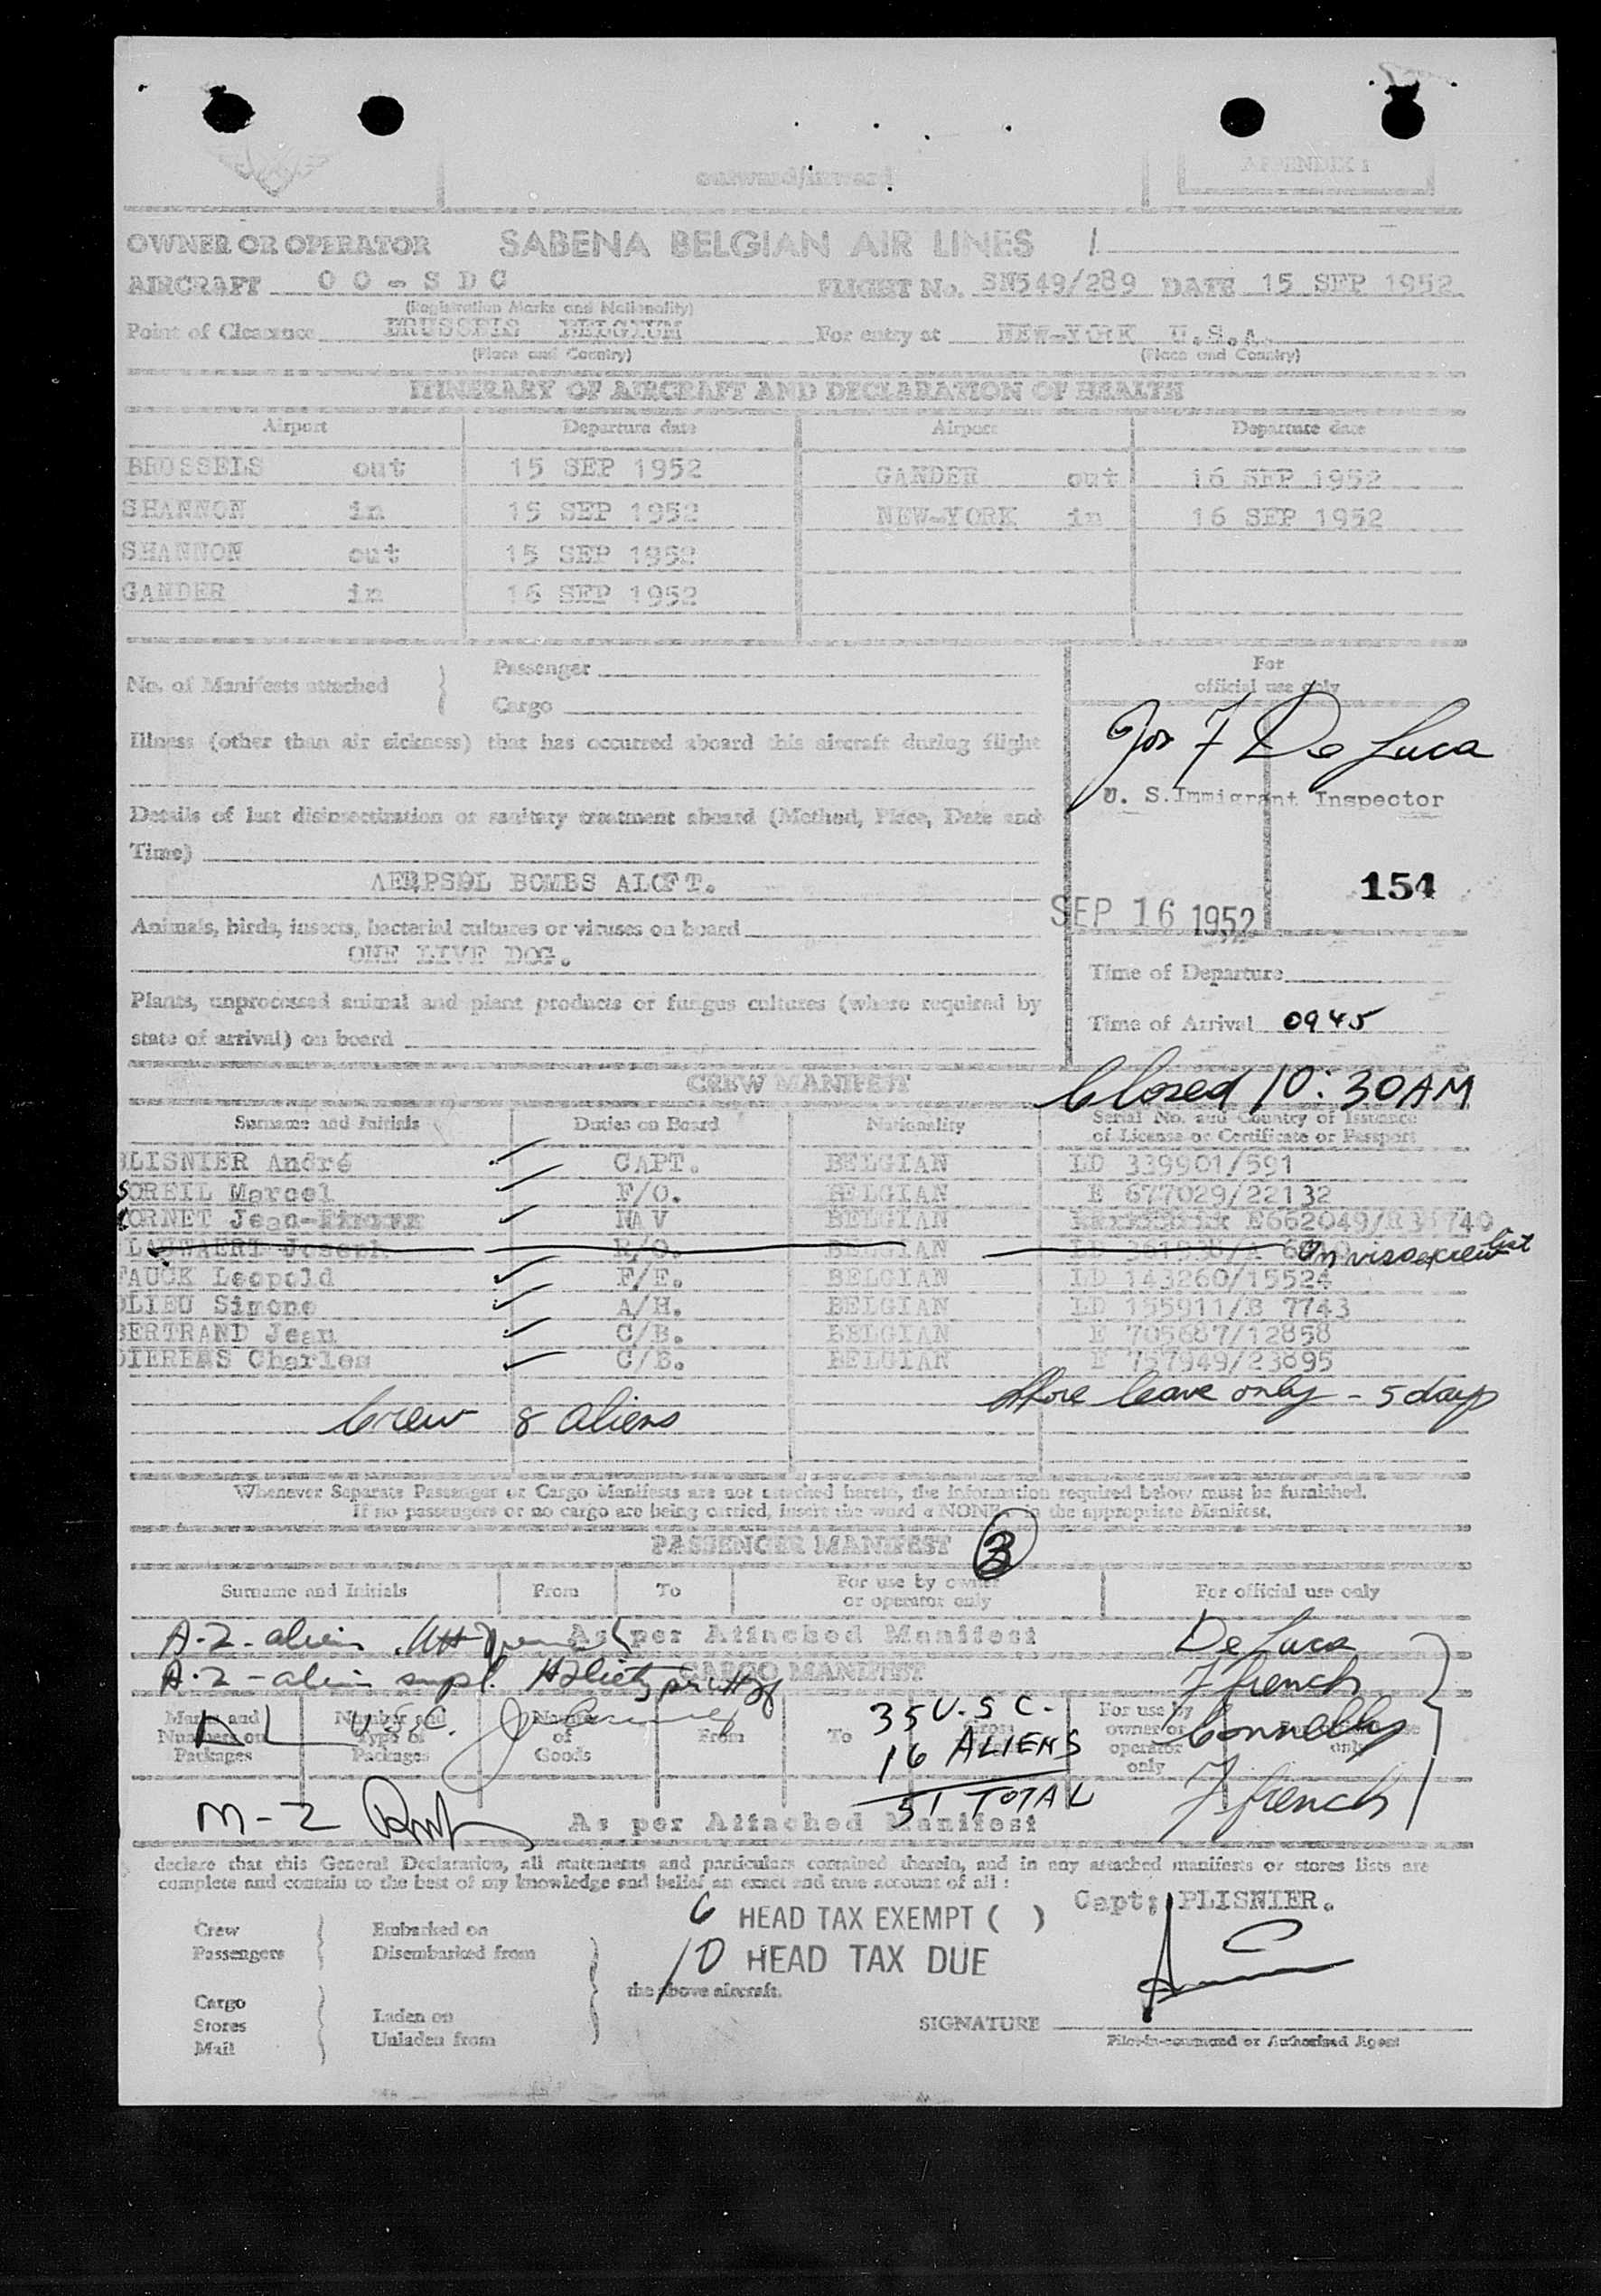 APPENDIX 1
outward/inward
OWNER OR OPERATOR SABENA BELGIAN AIR LINES /
AIRCRAFT OO-SDC FLIGHT No. SN549/289 DATE 15 SEP 1952
(Registration Marks and Nationality)
Point of Clearance BRUSSELS BELGIUM For entry at NEW-YORK U.S.A.
(Place and Country) (Place and Country)
ITINERARY OF AIRCRAFT AND DECLARATION OF HEALTH
Airport Departure date Airport Departure date
BRUSSELS out 15 SEP 1952 GANDER out 16 SEP 1952
SHANNON in 15 SEP 1952 NEW-YORK in 16 SEP 1952
SHANNON out 15 SEP 1952
GANDER in 16 SEP 1952
No. of Manifests attached { Passenger
Cargo
For
official use only
Jos F De Luca
U. S. Immigrant Inspector
Illness (other than air sickness) that has occurred aboard this aircraft during flight
Details of last disinsectization or sanitary treatment aboard (Method, Place, Date and
Time)
AERPSOL BOMBS ALOFT.
154
SEP 16 1952
Animals, birds, insects, bacterial cultures or viruses on board
ONE LIVE DOG.
Time of Departure
Plants, unprocessed animal and plant products or fungus cultures (where required by
state of arrival) on board
Time of Arrival 0945
CREW MANIFEST
Closed 10:30 AM
Surname and Initials Duties on Board Nationality Serial No. and Country of Issuance
of License or Certificate or Passport
LISNIER André CAPT. BELGIAN LD 339901/591
SOREIL Marcel F/O. BELGIAN E 677029/22132
CORNET Jean- NAV BELGIAN E662049/
LAUWAERT Joseph R/O. BELGIAN LD On visaed crew list
FAUCK Leopold F/E. BELGIAN LD 143260/15524
LIEU Simone A/H. BELGIAN LD 155911/B 7743
BERTRAND Jean C/B. BELGIAN E 705687/12858
DIERENS Charles C/B. BELGIAN E 757949/23695
Shore leave only - 5 days
Crew 8 aliens
Whenever Separate Passenger or Cargo Manifests are not attached hereto, the information required below must be furnished.
If no passengers or no cargo are being carried, insert the word « NONE » in the appropriate Manifest.
PASSENGER MANIFEST 3
Surname and Initials From To For use by owner
or operator only For official use only
A-2-alien As per Attached Manifest De Luca
A-2-alien supl. CARGO MANIFEST Ffrench
Marks and
Numbers on
Packages
Number and
Type of
Packages
Nature
of
Goods
From To Gross
For use by
owner or
operator
only
U.S.C.
35 U.S.C. Connelly
16 ALIENS
51 TOTAL Ffrench
M-2 As per Attached Manifest
declare that this General Declaration, all statements and particulars contained therein, and in any attached manifests or stores lists are
complete and contain to the best of my knowledge and belief an exact and true account of all :
Capt; PLISNIER.
6 HEAD TAX EXEMPT ( )
10 HEAD TAX DUE
Crew Embarked on
Passengers Disembarked from
the above aircraft.
Cargo
Stores Laden on
Mail Unladen from
SIGNATURE
Pilot-in-command or Authorised Agent